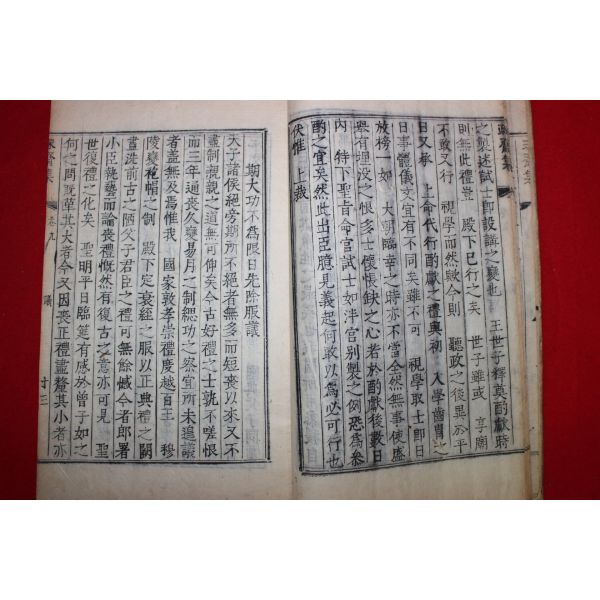 王世子釋奠酌獻時
之製述試士卽設講之變也
則無此禮豈 殿下已行之矣 世子雖或 享廟
不敢又行 視學而然歟今則 聽政之後異於平
日又承 上命代行酌獻之禮與初 入學齒冑之
日事體儀文宜有不同矣雖不可 視學取士卽日
放榜一如 大朝臨幸之時亦不當全然無事使盛
擧有埋没之恨多士懷悵缺之心若於酌獻後數日
內 特下聖旨命官試士如泮宮别製之例恐爲參
酌之宜矣然此出臣臆見義起何敢以爲必可行也
伏惟 上裁
期大功不爲限日先除服議
天子諸侯絶旁期所不絶者無多而短喪以來又不
盡制親親之道無可仰矣今古好禮之士孰不嗟恨
而三年通喪久襄易月之制緦功之察宜所未遑議
者盖無及焉惟我 國家敦孝崇禮度越百王 穆
陵襄袍帽之制 殿下定衰絰之服以正典禮之闕
盡洗前古之陋父子君臣之禮可無餘憾今者郎署
小臣執藝而論喪禮慨然有復古之意亦可見 聖
世復禮之化矣 聖明平日臨筵有感於曾子如之
何之問旣革其大者今又因喪正禮盡釐其小者亦
卷九
議
十三